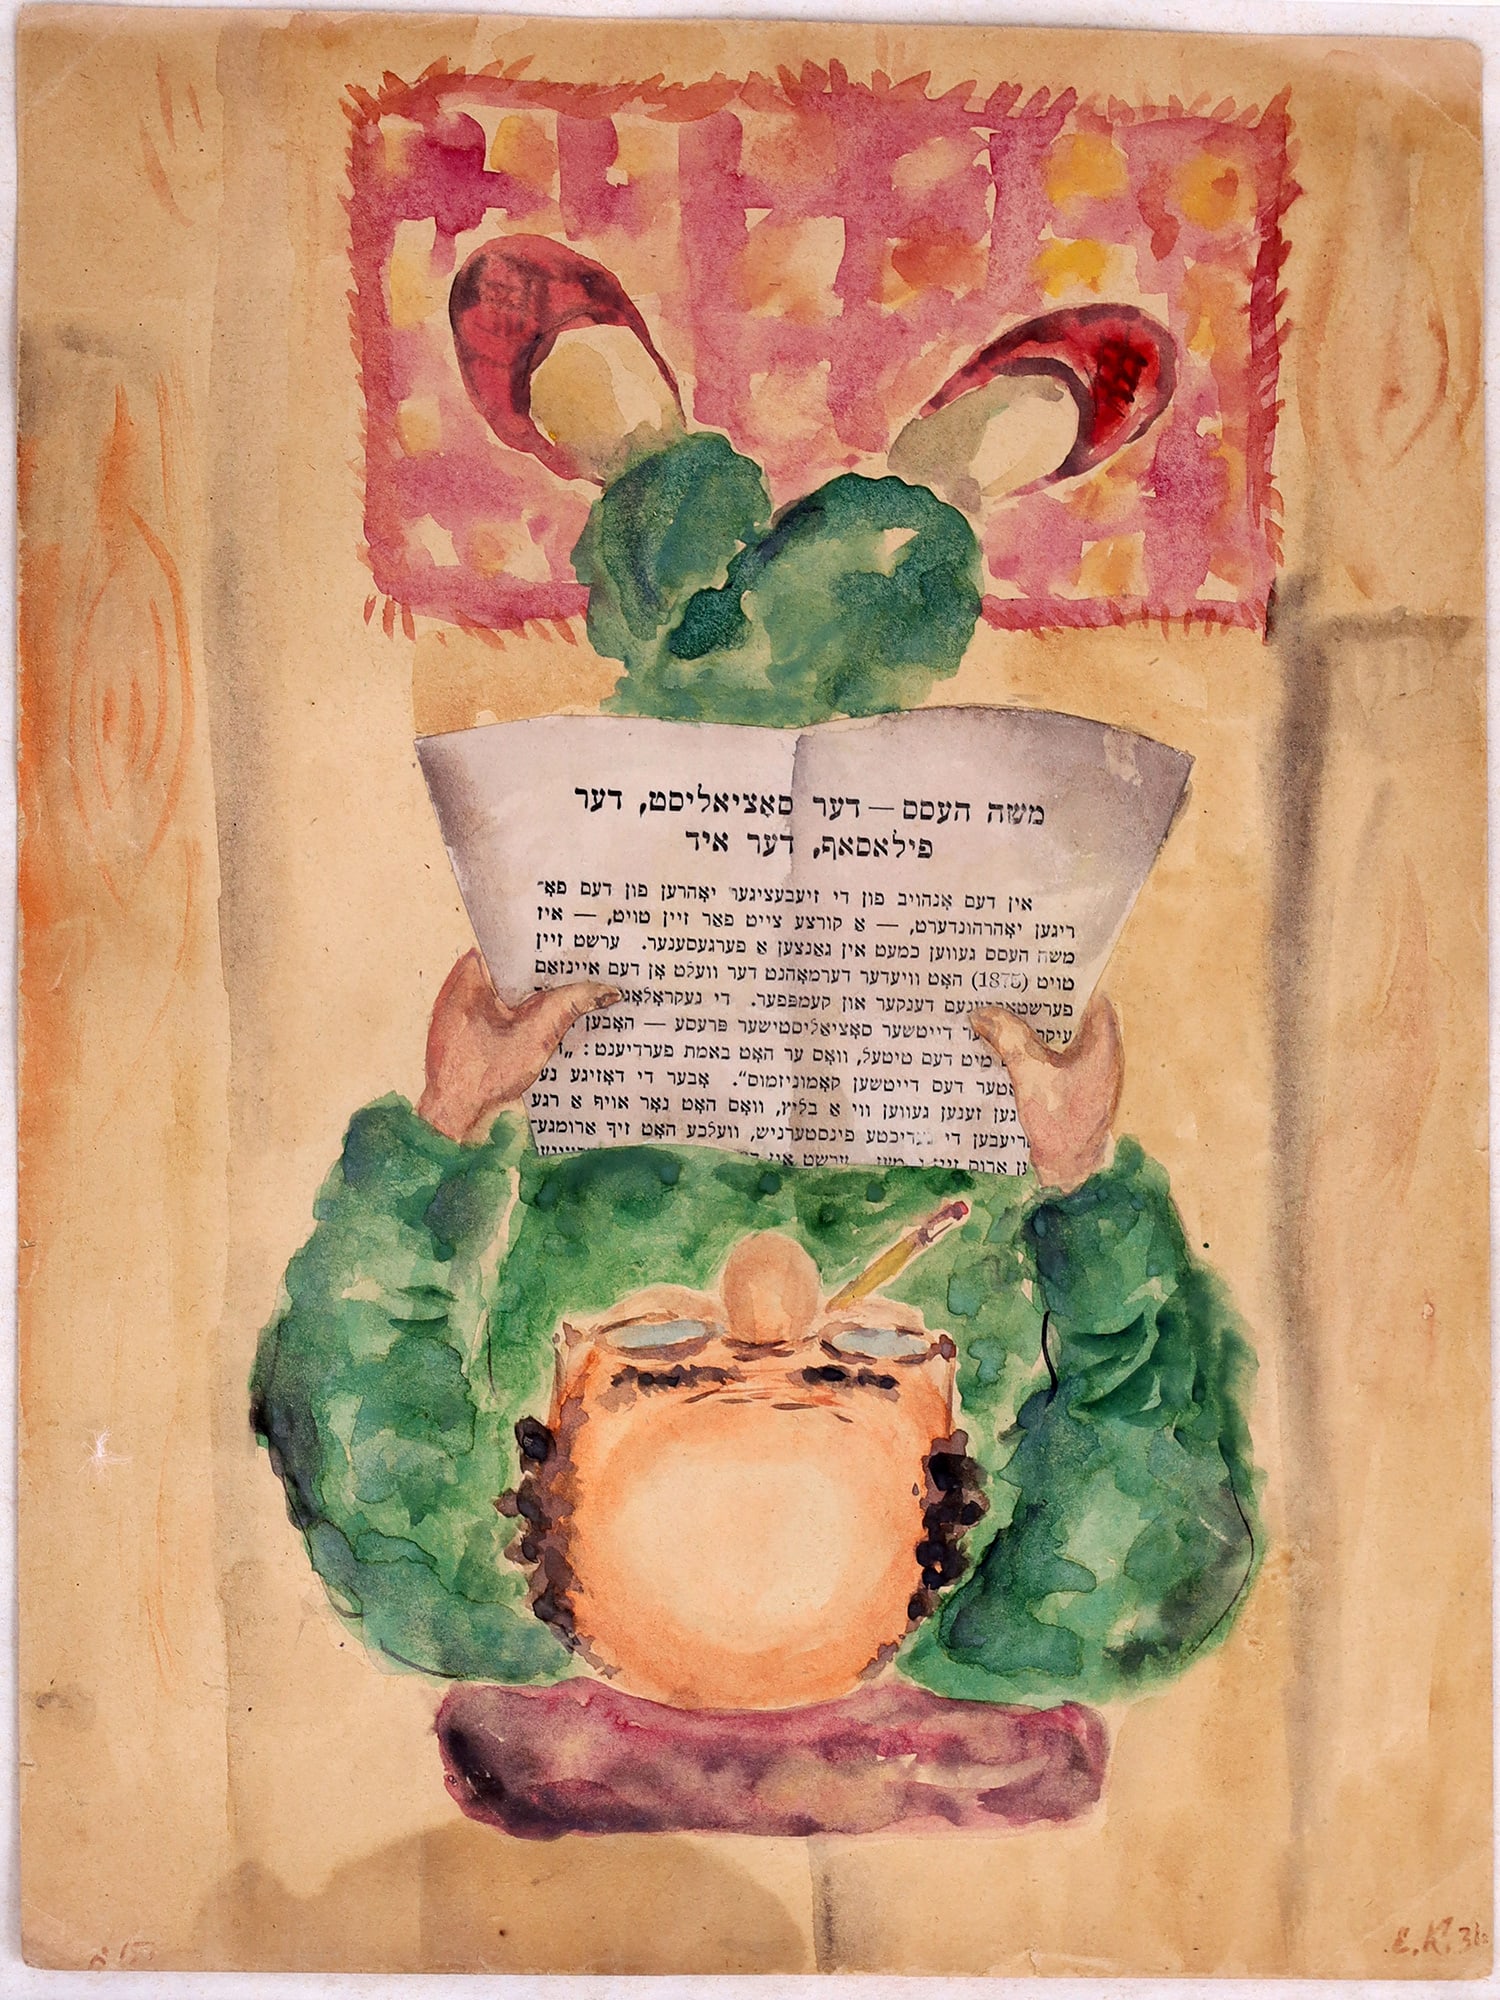 משה העסס — דער סאָציאַליסט, דער
פילאסאף, דער איד
אין דעם אָנהויב פון די זיעבעציגער יאָהרען פון דעם פאָ־
ריגען יאָהרהונדערט, — אַ קורצע צייט פאַר זיין טויט, — איז
משה העסס געווען כמעט אין גאַנצען אַ פערגעסענער. ערשט זיין
טויט (1875) האָט וויעדער דערמאָהנט דער וועלט אָן דעם איינזאַם
דענקער און קעמפּפער. די
דייטשער סאָציאַליסטישער פּרעסע — האָבען
מיט דעם טיטעל, וואָס ער האָט באמת פערדיענט:
דעם דייטשען קאָמוניזמוס". אָבער די דאָזיגע
זענען געווען ווי אַ בליץ, וואָס האָט נאָר אויף אַ רגע
די געדיכטע פינסטערניש, וועלכע האָט זיך ארומגע־
ערשט אין
E.K. 36